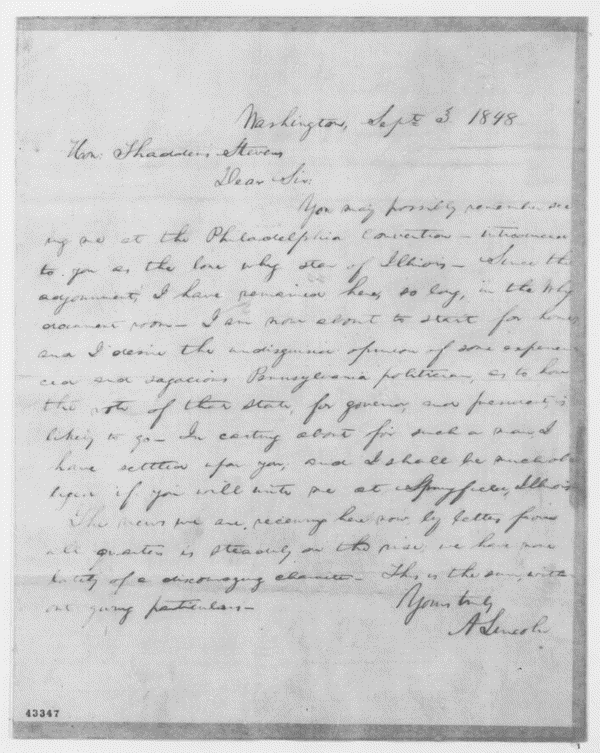 Washington, Sept. 3. 1848
Hon: Thaddeus Stevens
Dear Sir:
You may possibly remember see-
ing me at the Philadelphia Convention—introduced
to you as the lone whig star of Illinois— Since the
adjournment, I have remained here, so long, in the Whig
document room— I am now about to start for home;
and I desire the undisguised opinion of some experien-
ced and sagacious Pennsylvania politician, as to how
the vote of that state, for governor, and president, is
likely to go— In casting about for such a man, I
have settled upon you; and I shall be much ob-
liged if you will write me at Springfield, Illinois
The news we are receiving here now, by letters from
all quarters is steadily on the rise; we have none
lately of a discouraging character— This is the sum, with-
out giving particulars—
Yours truly
A Lincoln
43347